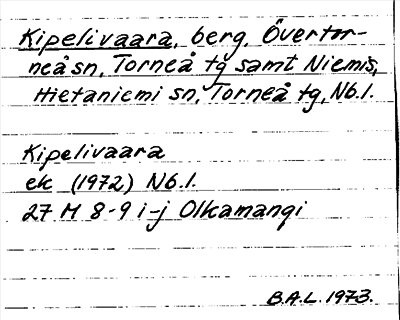 Kipelivaara, berg, Övertor-
neå sn, Torneå tg samt Niemis,
Hietaniemi sn, Torneå tg, Nb.l.
Kipelivaara
ek (1972) Nb.l.
27 M 8-9 i-j Olkamangi
B.A.L. 1973.